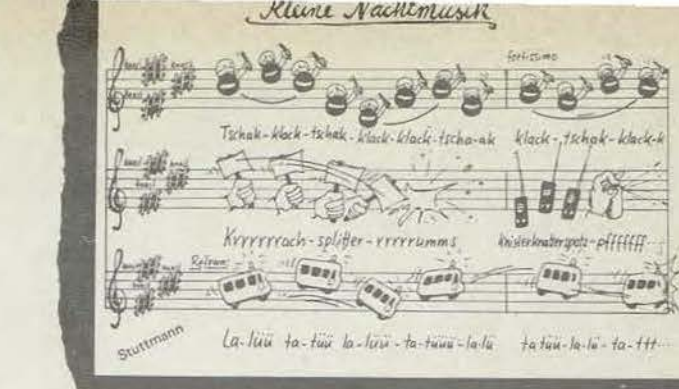 Kleine Nachtmusik
fortissimo
Tschak-klack-tschak-klack-klack-tscha-ak klack-tschak-klack-k
Krrrrrrach-splitter-rrrrrumms knisterknatterspotz-pfffffff...
Refrain:
La-lüü ta-tüü la-lüü-ta-tüüü-la-lü ta tüü-la-lü-ta-ttt...
Stuttmann